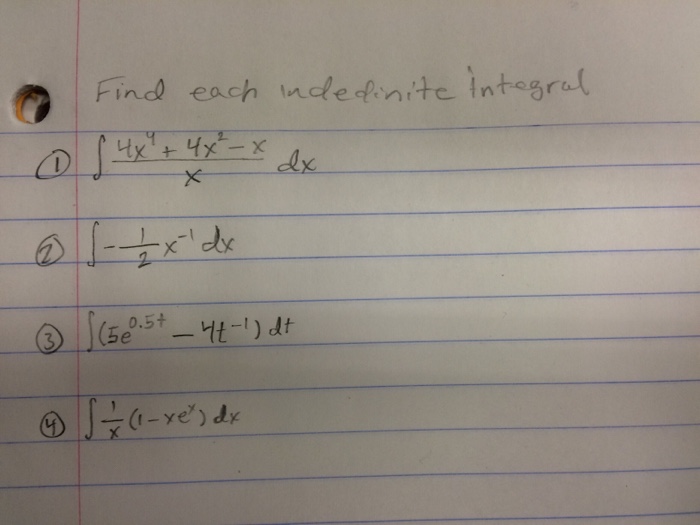 Find each indefinite integral
① ∫ (4x⁴ + 4x² - x)/x dx
② ∫ -1/2 x⁻¹ dx
③ ∫(5e^0.5t - 4t⁻¹) dt
④ ∫ 1/x (1 - xeˣ) dx